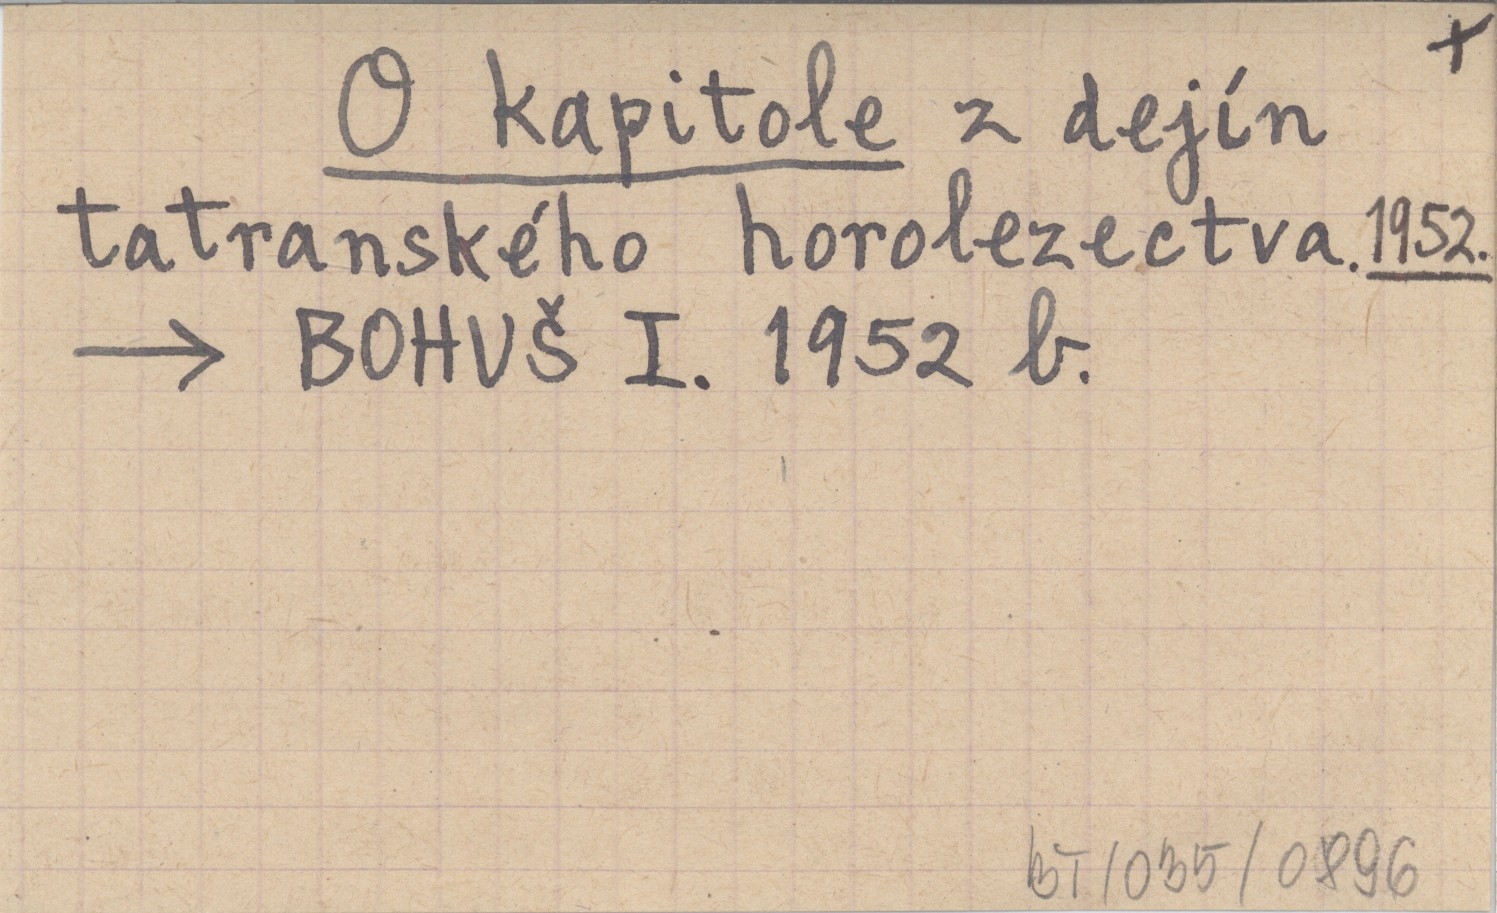 +
O kapitole z dejín
tatranského horolezectva. 1952.
→ BOHUŠ I. 1952 b.
BT/035/0896